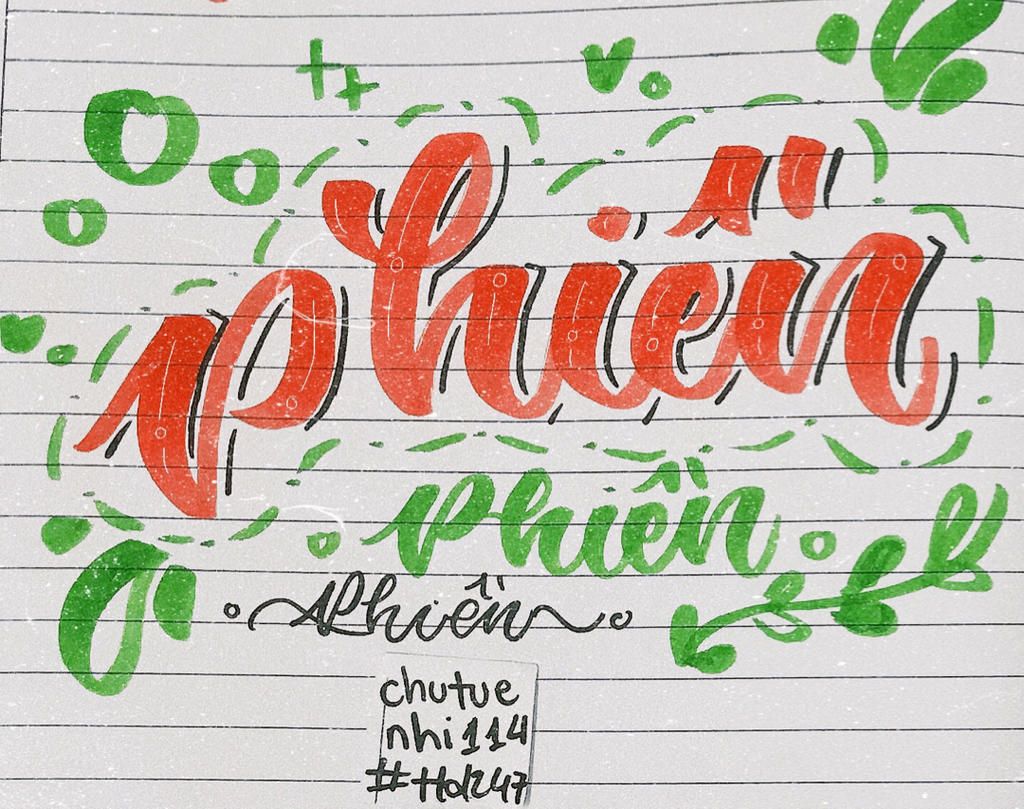 phiền
phiền
phiền
chutue
nhi114
#ttd247